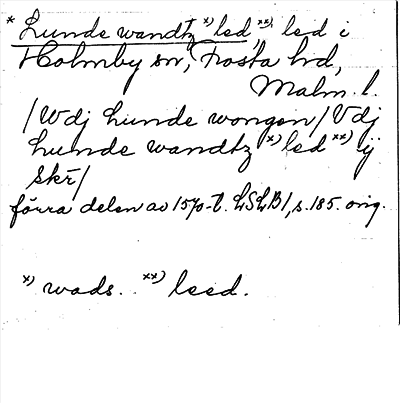 * Lunde wandtz x) led, xx) led i
Holmby sn, Frosta hd,
Malm. l.
/Wdj hunde wongen/Vdj
hunde wandtz x) led xx) ij
skr/
förra delen av 1570-t. LSLB1, s. 185. orig.
x) wads. . xx) leed.